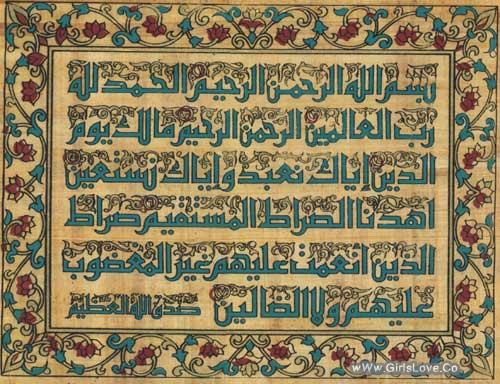 بسم الله الرحمن الرحيم الحمد لله
رب العالمين الرحمن الرحيم مالك يوم
الدين إياك نعبد وإياك نستعين
اهدنا الصراط المستقيم صراط
الذين أنعمت عليهم غير المغضوب
عليهم ولا الضالين صدق الله العظيم
www.GirlsLove.Co